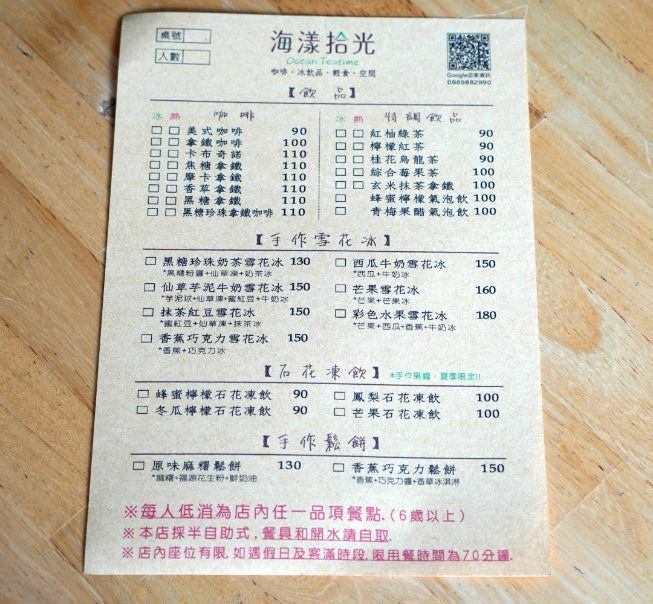 桌號
人數
海漾拾光
Ocean Teatime
咖啡·冰飲品·輕食·空間
Google店家資訊
0989882990
【飲 品】
冰 熱 咖啡
美式咖啡 90
拿鐵咖啡 100
卡布奇諾 110
焦糖拿鐵 110
摩卡拿鐵 110
香草拿鐵 110
黑糖拿鐵 110
黑糖珍珠拿鐵咖啡 110
冰 熱 特調飲品
紅柚綠茶 90
檸檬紅茶 90
桂花烏龍茶 90
綜合莓果茶 100
玄米抹茶拿鐵 100
蜂蜜檸檬氣泡飲 100
青梅果醋氣泡飲 100
【手作雪花冰】
黑糖珍珠奶茶雪花冰 130
*黑糖粉圓+仙草凍+奶茶冰
仙草芋泥牛奶雪花冰 150
*芋泥球+仙草凍+蜜紅豆+牛奶冰
抹茶紅豆雪花冰 150
*蜜紅豆+仙草凍+抹茶冰
香蕉巧克力雪花冰 150
*香蕉+巧克力冰
西瓜牛奶雪花冰 150
*西瓜+牛奶冰
芒果雪花冰 160
*芒果+芒果冰
彩色水果雪花冰 180
*芒果+西瓜+香蕉+牛奶冰
【石花凍飲】 *手作果醬,夏季限定!!
蜂蜜檸檬石花凍飲 90
冬瓜檸檬石花凍飲 90
鳳梨石花凍飲 100
芒果石花凍飲 100
【手作鬆餅】
原味麻糬鬆餅 130
*麻糬+福源花生粉+鮮奶油
香蕉巧克力鬆餅 150
*香蕉+巧克力醬+香草冰淇淋
※每人低消為店內任一品項餐點.(6歲以上)
※本店採半自助式,餐具和開水請自取.
※店內座位有限,如遇假日及客滿時段,限用餐時間為70分鐘.